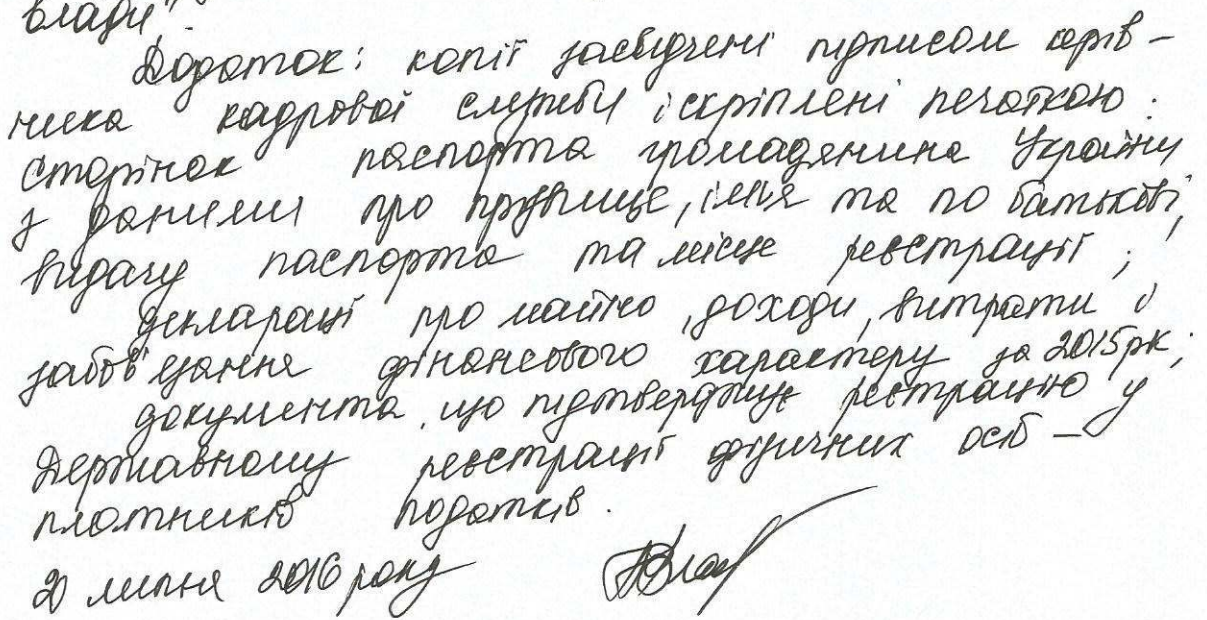 влади".
Додаток: копії засвідчені підписом керів-
ника кадрової служби і скріплені печаткою:
сторінок паспорта громадянина України
з даними про прізвище, ім'я та по батькові,
видачу паспорта та місце реєстрації;
декларації про майно, доходи, витрати і
забов'язання фінансового характеру за 2015 рік;
документа, що підтверджує реєстрацію у
Державному реєстрації фізичних осіб –
платників податків.
20 липня 2016 року